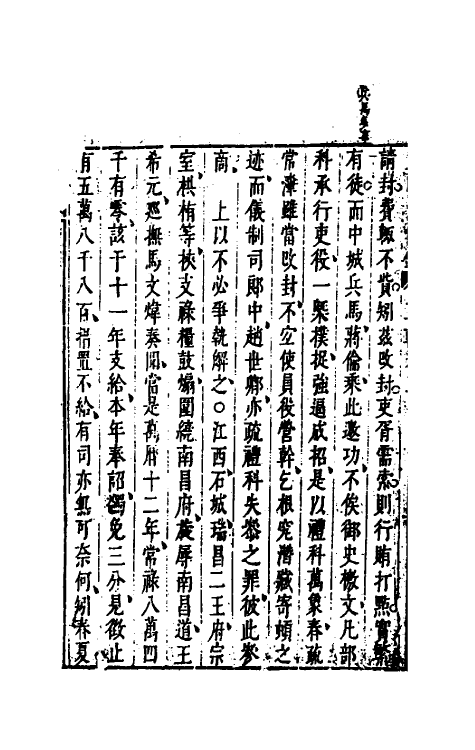 兵馬
請封費輒不貲矧茲改封吏胥需索則行賄打點實繁
有徒而中城兵馬蔣倫乘此邀功不俟御史檄文凡部
科承行吏役一槩撲捉強逼成招是以禮科萬象春疏
常濼雖當改封不宜使員役營幹乞根究潛蔵寄頓之
迹而儀制司郎中趙世卿亦疏禮科失叅之罪彼此參
商　上以不必爭競解之○江西石城瑞昌二王府宗
室棋栯等挾支祿糧鼓煽圍繞南昌府凌辱南昌道王
希元廵撫馬文煒奏聞當是萬曆十二年常祿八萬四
千有零該于十一年支給本年奉詔蠲免三分見徵止
有五萬八千八百措置不給有司亦無可奈何矧春夏